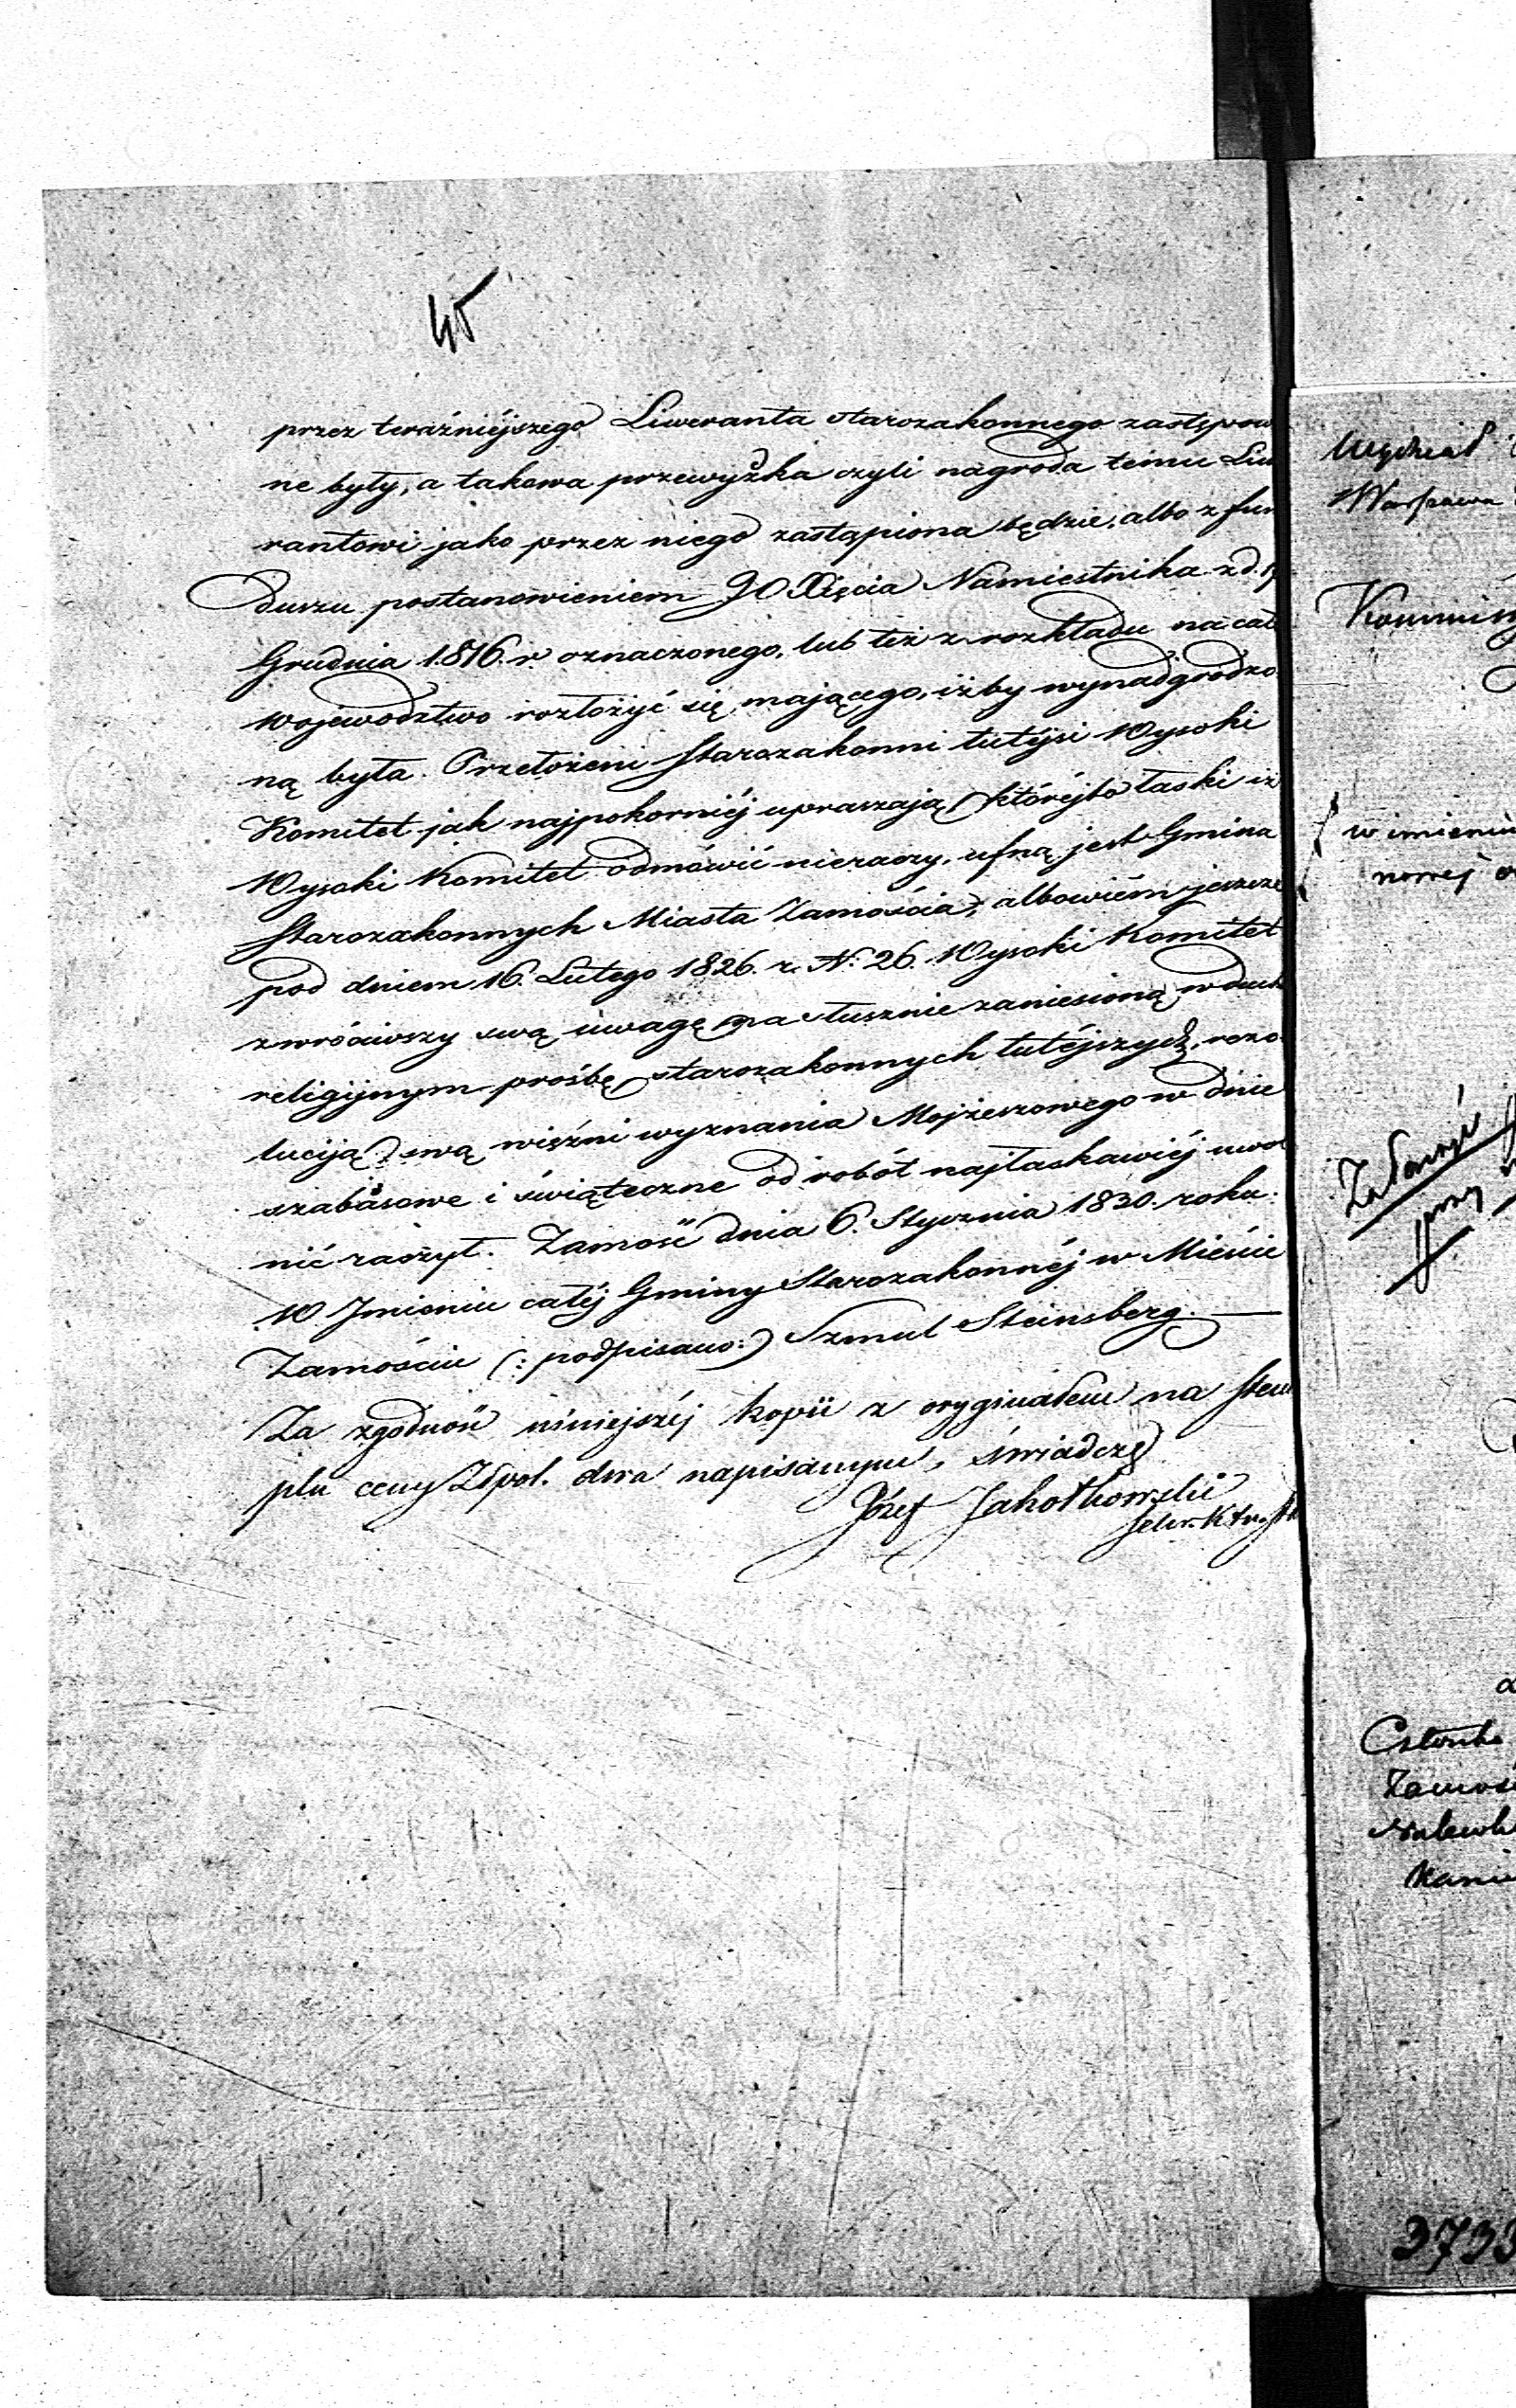 45
przez teraźniéjszego Liweranta starozakonnego zastępow
ne były, a takowa przewyżka czyli nagroda temu Liw
rantowi jako przez niego zastąpiona będzie, albo z fun
duszu postanowieniem JO Xięcia Namiestnika z d.
Grudnia 1816. r oznaczonego, lub też z rozkładu na cał
Województwo rozłożyć się mającego, iżby wynadgrodzo
ną była. Przełożeni Starozakonni tutéjsi Wysoki
Komitet jak najpokorniéj upraszają, któréjto łaski iż
Wysoki Komitet odmówić nieraczy, ufną jest Gmina
Starozakonnych Miasta Zamościa, albowiém jeszcze
pod dniem 16. Lutego 1826. r. N: 26. Wysoki Komitet
zwróciwszy swą uwagę na słusznie zaniesioną w duch
religijnym prośbę starozakonnych tutéjszych, rezo
luciją swą więźni wyznania Mojżeszowego w dnie
szabasowe i świąteczne od robót najłaskawiéj uwol
nić raczył. Zamość dnia 6. Stycznia 1830. roku.
W Jmieniu całéj Gminy Starozakonnéj w Mieście
Zamościu (: podpisano:) Szmul Steinsberg. —
Za zgodność niniejszéj kopii z oryginałem na stem
plu ceny Złpol. dwa napisanym, świadczę
Józef
Wydział
Warszawa
Kommiss
w imieniu
nowej
przy
Członka
Zamość
3733